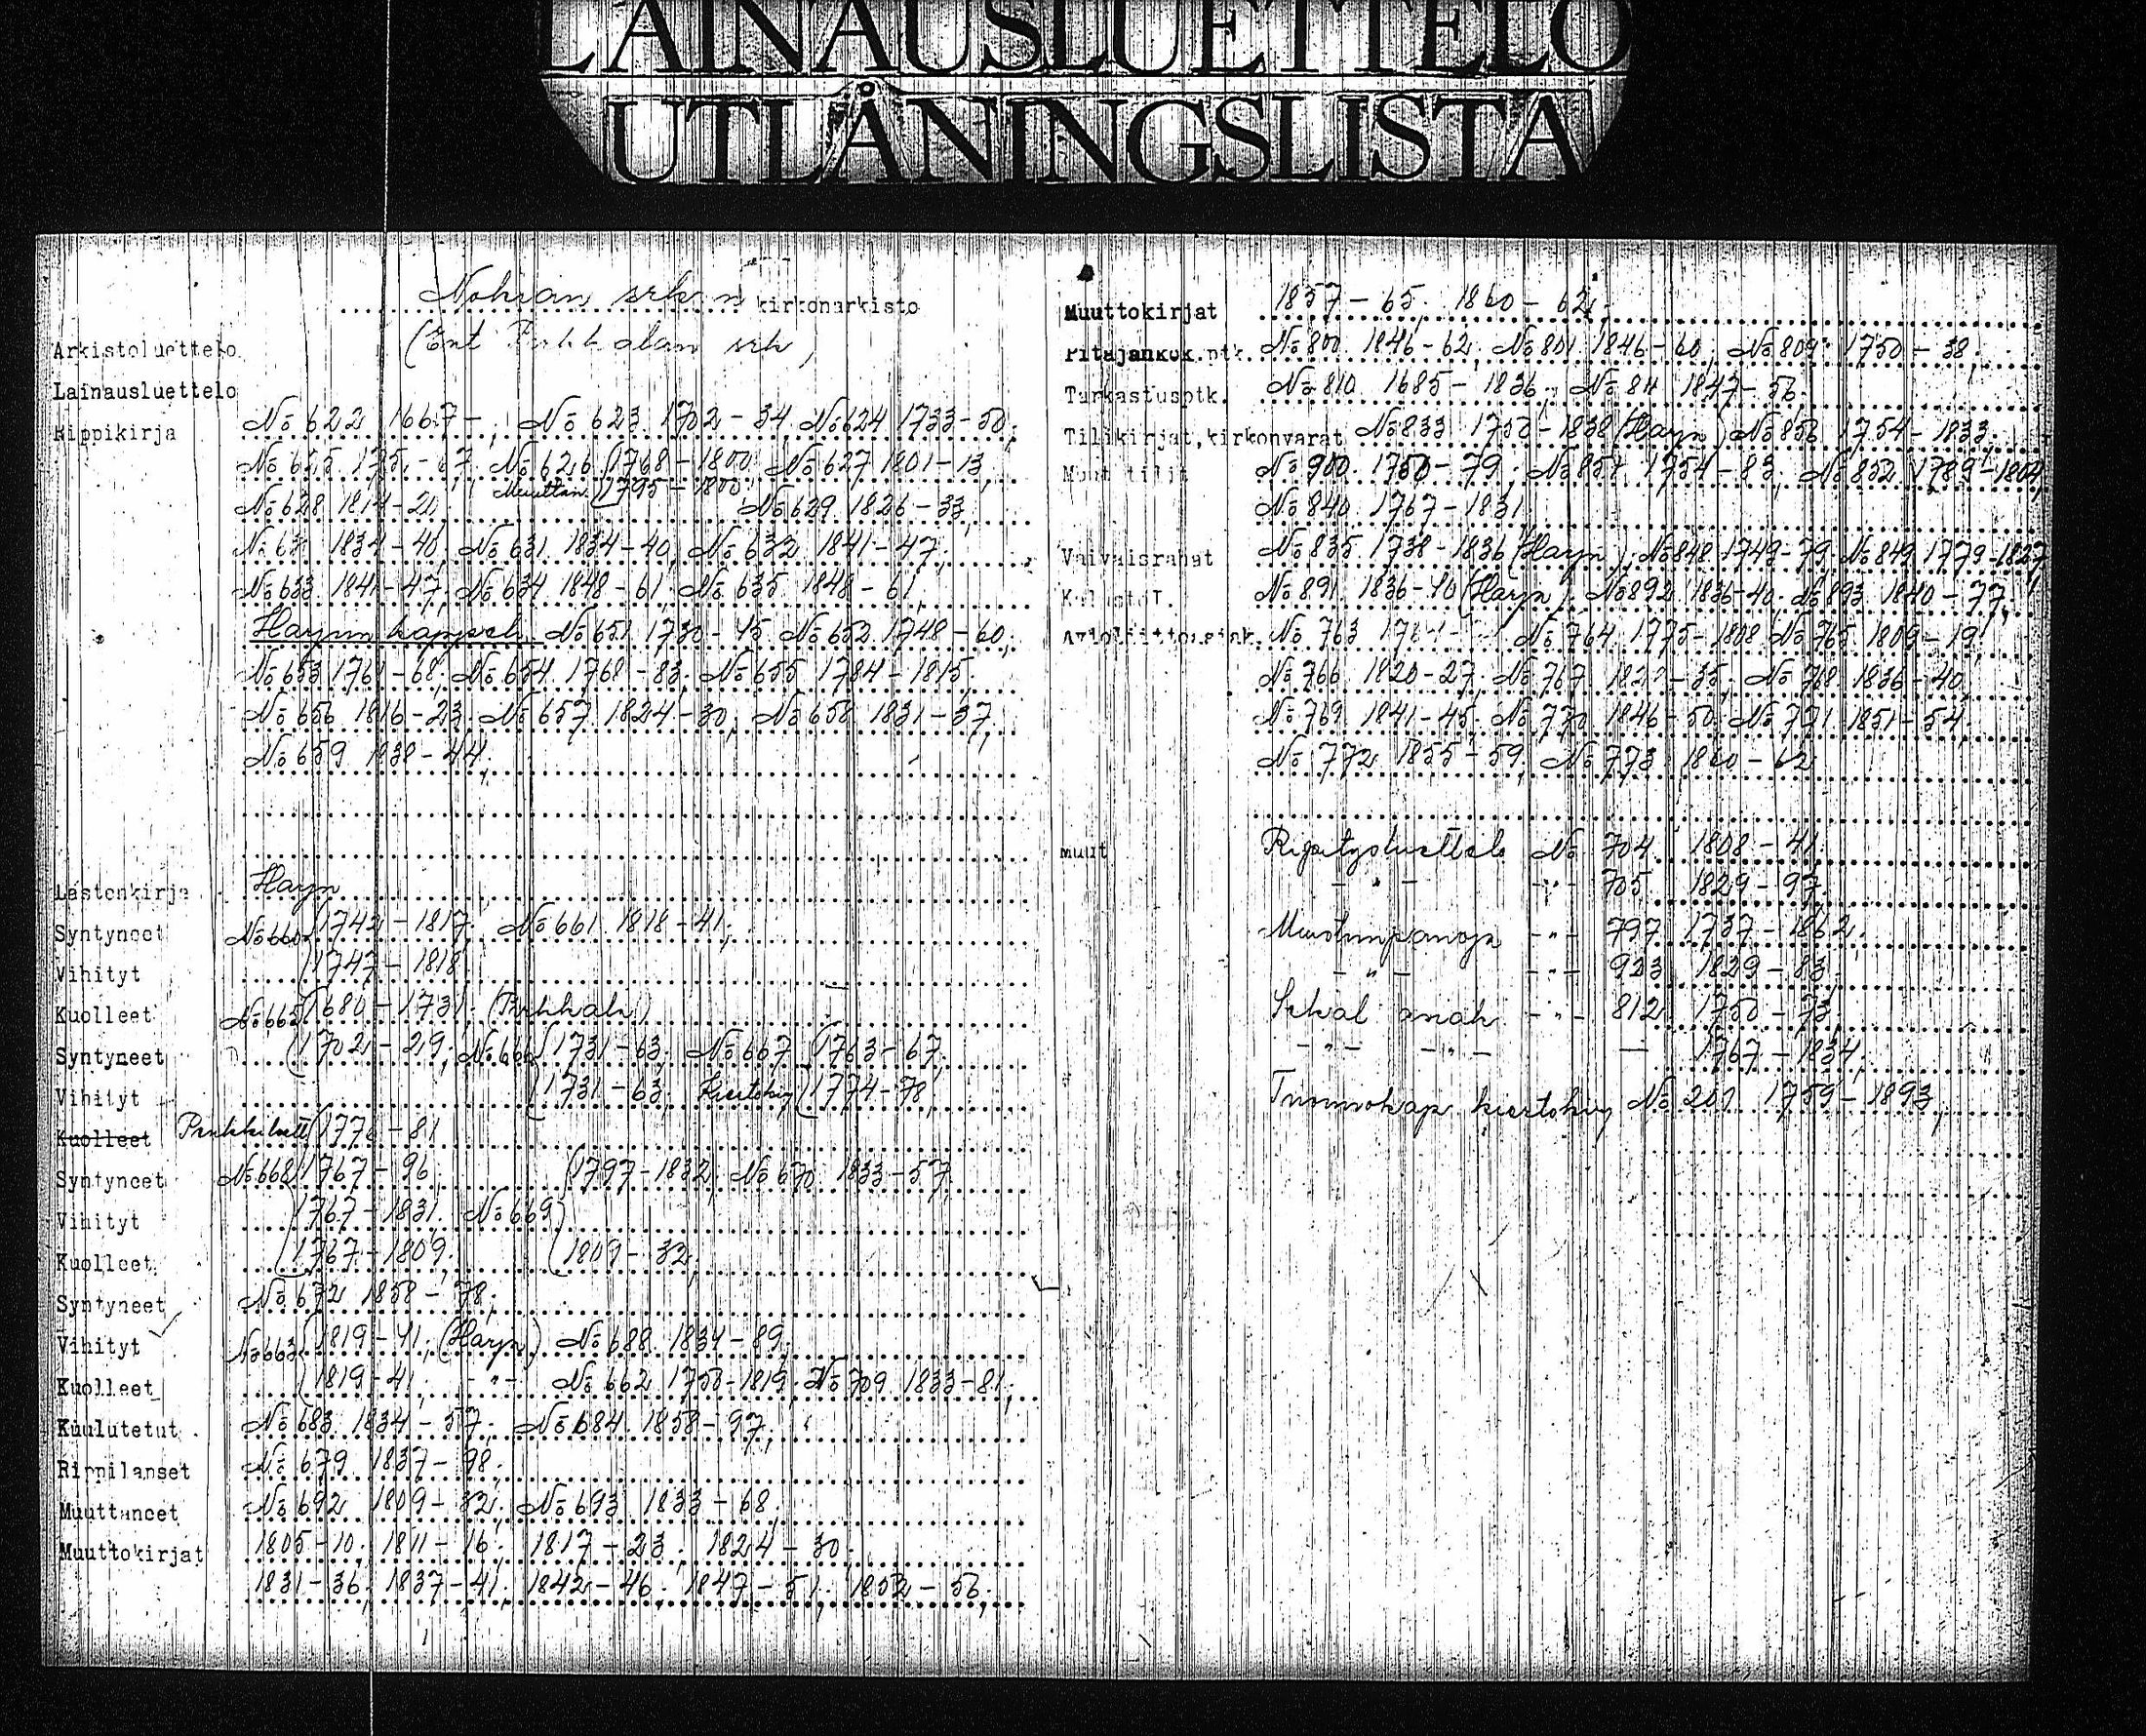 LAINAUSLUETTELO
UTLÅNINGSLISTA
Nokian srk:n kirkonarkisto
(Ent Pirkkalan srk)
Arkistoluettelo
Lainausluettelo
Rippikirja No 622 1667-, No 623 1702-34, No 624 1733-50,
No 625 1751-67, No 626 (1768-1800, No 627 1801-13,
No 628 1814-20, Muuttan. (1795-1800, No 629 1826-33,
1834-40, No 631 1834-40, No 632 1841-47,
No 633 1841-47, No 634 1848-61, No 635 1848-61,
Harjun kappeli No 651 1730-45 No 652 1748-60,
No 653 1761-68, No 654 1768-83, No 655 1784-1815,
No 656 1816-23, No 657 1824-30, No 658 1831-37,
No 659 1838-44,
Lastenkirja Harju
Syntyneet No 660 (1742-1817, No 661 1818-41,
Vihityt (1747-1818,
Kuolleet (1680-1731. (Pirkkala)
Syntyneet (1702-29, No 666 (1731-63, No 667 (1763-67,
Vihityt (1731-63, Kiertokirj (1774-78,
Kuolleet (1776-81
Syntyneet No 668 (1767-96, (1797-1832, No 670 1833-57,
Vihityt 1767-1831, No 669
Kuolleet (1767-1809, (1809-32,
Syntyneet No 672 1858-78,
Vihityt No 663 (1819-41, (Harju) No 688 1834-89,
Kuolleet (1819-41, -"- No 662 1750-1819, No 709 1833-81,
Kuulutetut No 683 1834-57, No 684 1858-97,
Rippilapset No 679 1837-98,
Muuttaneet No 692 1809-32, No 693 1833-68,
Muuttokirjat 1805-10, 1811-16, 1817-23, 1824-30,
1831-36, 1837-41, 1842-46, 1847-51, 1852-56,
Muuttokirjat 1857-65, 1860-62,
Pitäjänkok.ptk. No 800 1846-62, No 801 1846-60, No 809 1750-38,
Tarkastusptk. No 810 1685-1836, No 811 1847-56
Tilikirjat,kirkonvarat No 833 1750-1838 (Harju) No 856 1754-1833,
Muut tilit No 900 1750-79, No 857 1754-83, No 852 1789-1804,
No 840 1767-1831
Vaivaisrahat No 835 1738-1836 (Harju), No 848 1749-79, No 849 1779-1827
No 891 1836-40 (Harju), No 892 1836-40, No 893 1840-77,
Avioliitto.asiak. No 763 No 764 1775-1808 No 765 1809-19,
No 766 1820-27, No 767 1827-35, No 768 1836-40,
No 769 1841-45, No 770 1846-50, No 771 1851-54,
No 772 1855-59, No 773 1860-62
Muut Ripitysluettelo No 704 1808-41,
-"- -"- 705 1829-97,
Muistiinpanoja -"- 797 1737-1862,
-"- -"- 923 1829-83,
Sekal. asiak. -"- 812 1750-73,
-"- -"- — 1767-1834,
Tuomiokap kiertokirj No 201 1759-1893,